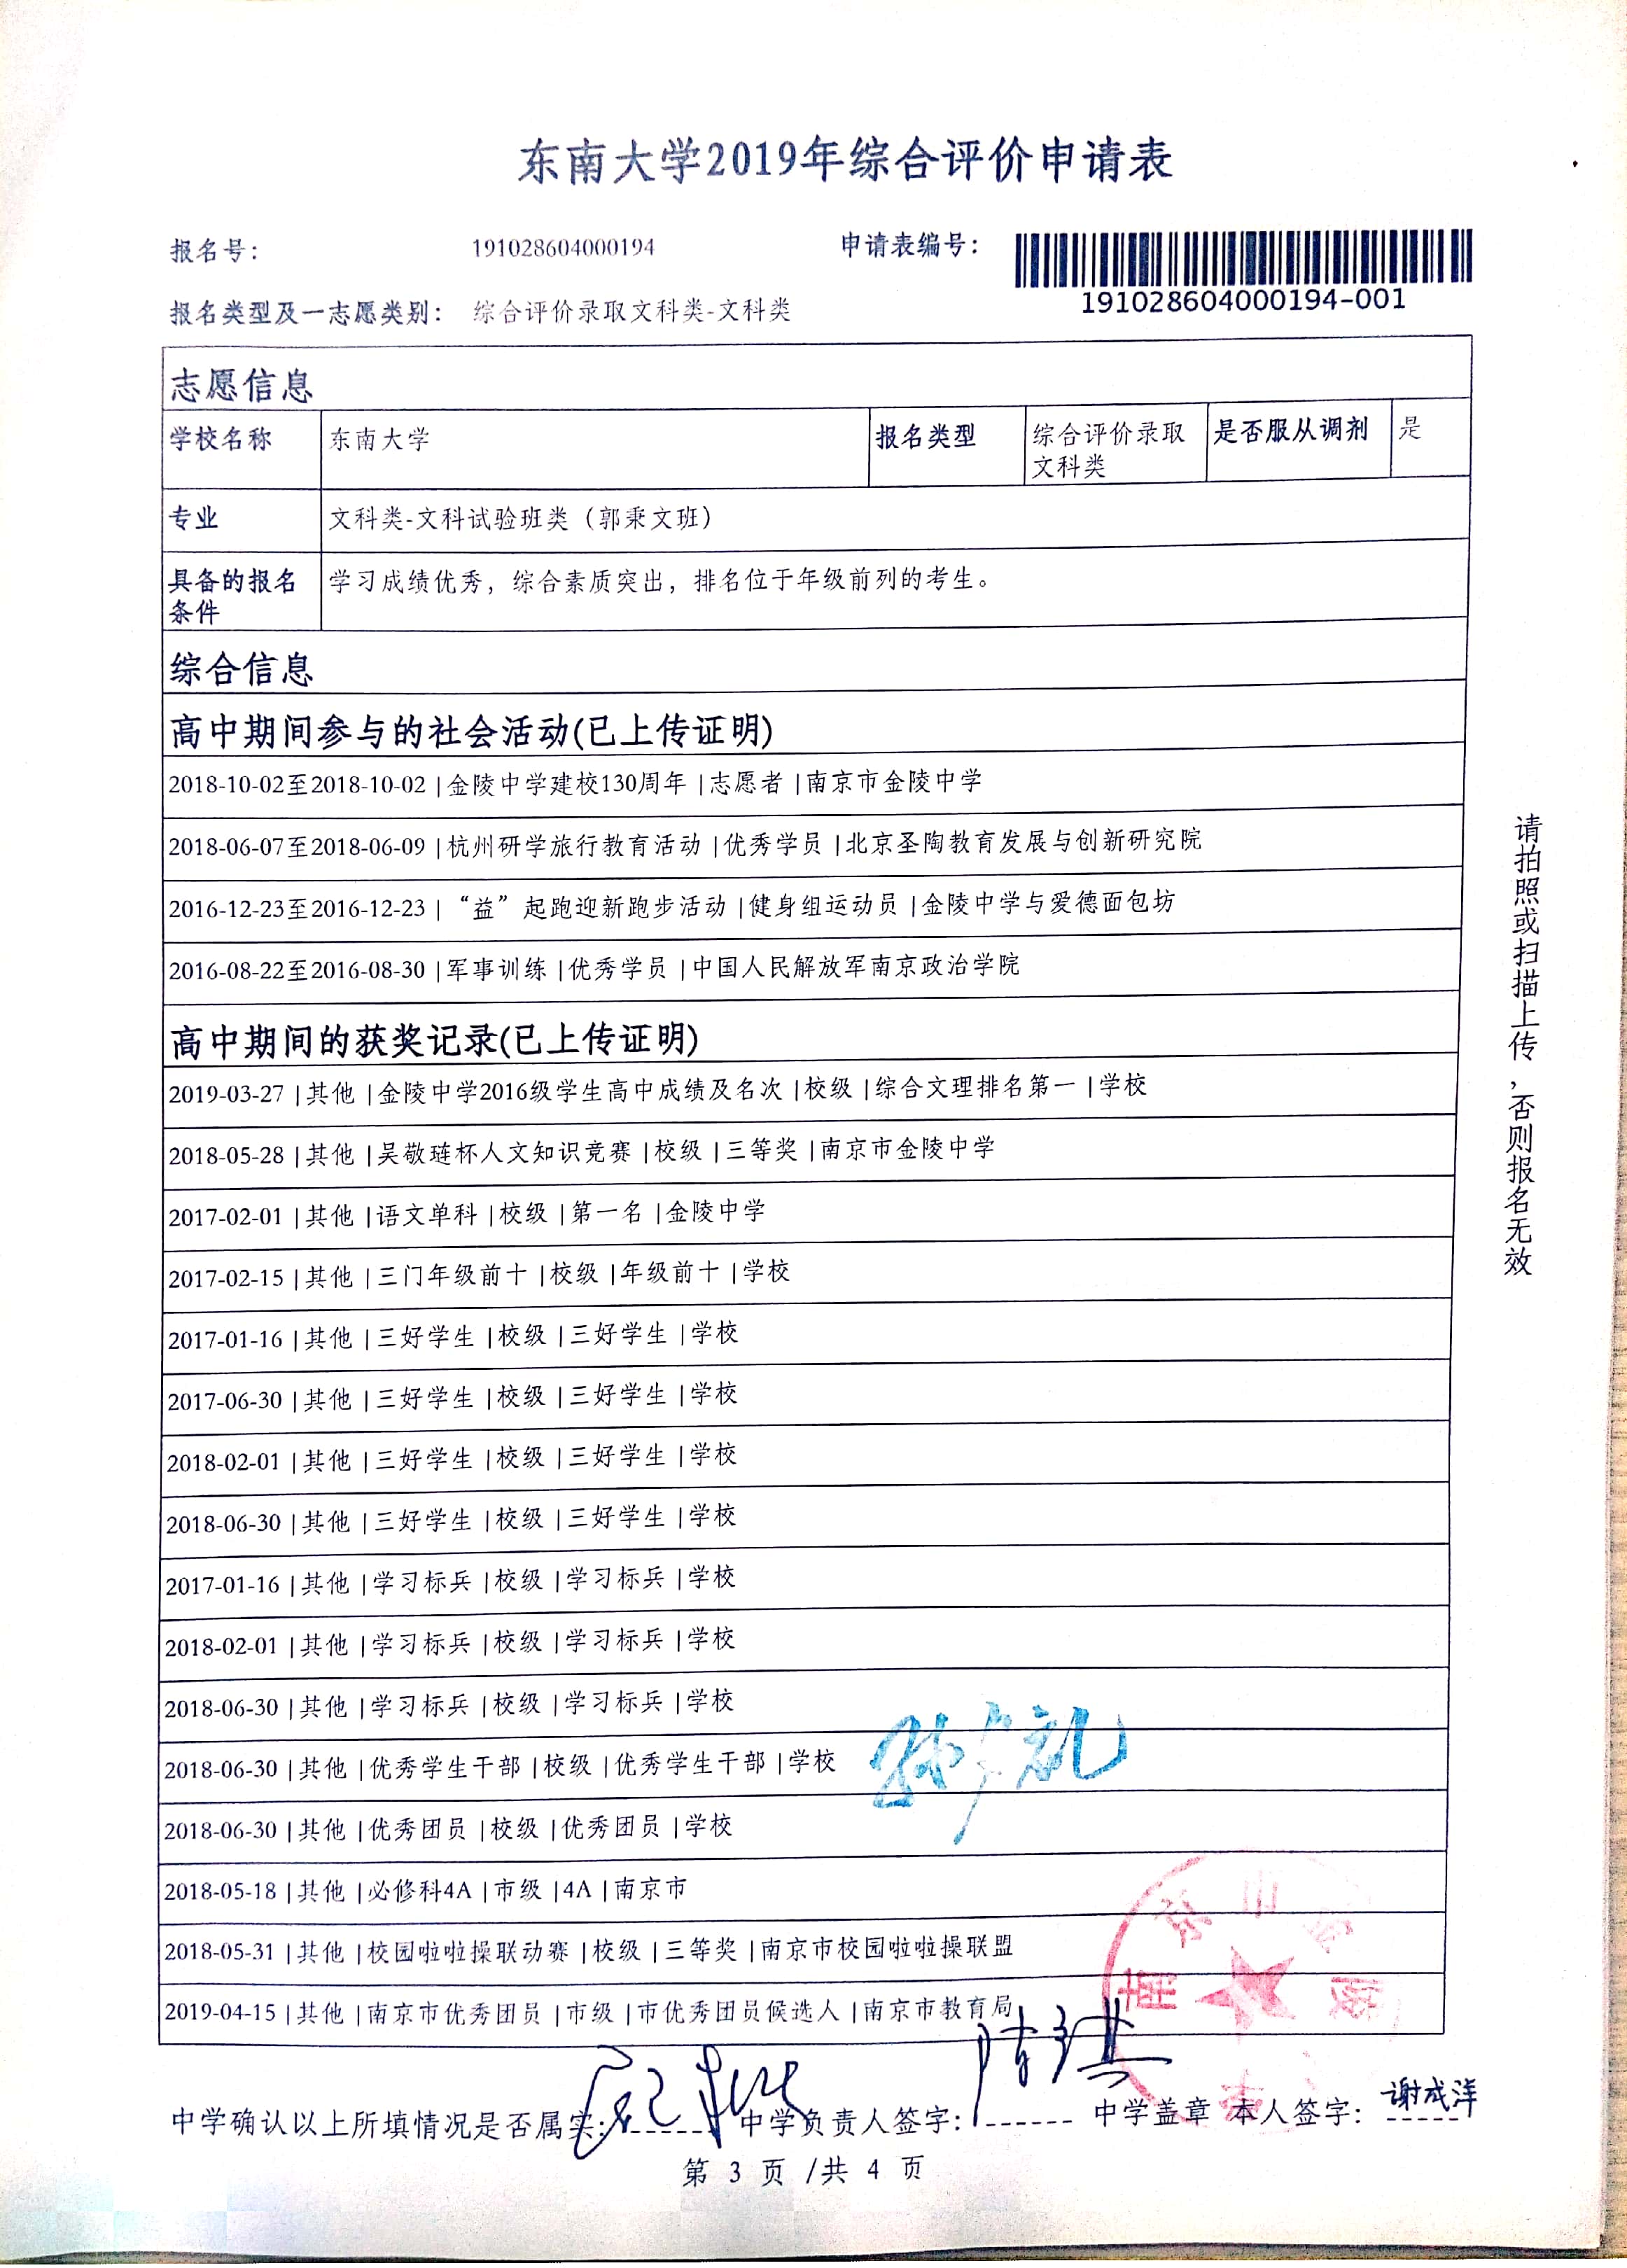 东南大学2019年综合评价申请表
报名号： 191028604000194 申请表编号：
191028604000194-001
报名类型及一志愿类别： 综合评价录取文科类-文科类
志愿信息
学校名称 东南大学 报名类型 综合评价录取文科类 是否服从调剂 是
专业 文科类-文科试验班类（郭秉文班）
具备的报名条件 学习成绩优秀，综合素质突出，排名位于年级前列的考生。
综合信息
高中期间参与的社会活动(已上传证明)
2018-10-02至2018-10-02 |金陵中学建校130周年 |志愿者 |南京市金陵中学
2018-06-07至2018-06-09 |杭州研学旅行教育活动 |优秀学员 |北京圣陶教育发展与创新研究院
2016-12-23至2016-12-23 |“益”起跑迎新跑步活动 |健身组运动员 |金陵中学与爱德面包坊
2016-08-22至2016-08-30 |军事训练 |优秀学员 |中国人民解放军南京政治学院
高中期间的获奖记录(已上传证明)
2019-03-27 |其他 |金陵中学2016级学生高中成绩及名次 |校级 |综合文理排名第一 |学校
2018-05-28 |其他 |吴敬琏杯人文知识竞赛 |校级 |三等奖 |南京市金陵中学
2017-02-01 |其他 |语文单科 |校级 |第一名 |金陵中学
2017-02-15 |其他 |三门年级前十 |校级 |年级前十 |学校
2017-01-16 |其他 |三好学生 |校级 |三好学生 |学校
2017-06-30 |其他 |三好学生 |校级 |三好学生 |学校
2018-02-01 |其他 |三好学生 |校级 |三好学生 |学校
2018-06-30 |其他 |三好学生 |校级 |三好学生 |学校
2017-01-16 |其他 |学习标兵 |校级 |学习标兵 |学校
2018-02-01 |其他 |学习标兵 |校级 |学习标兵 |学校
2018-06-30 |其他 |学习标兵 |校级 |学习标兵 |学校
2018-06-30 |其他 |优秀学生干部 |校级 |优秀学生干部 |学校
2018-06-30 |其他 |优秀团员 |校级 |优秀团员 |学校
2018-05-18 |其他 |必修科4A |市级 |4A |南京市
2018-05-31 |其他 |校园啦啦操联动赛 |校级 |三等奖 |南京市校园啦啦操联盟
2019-04-15 |其他 |南京市优秀团员 |市级 |市优秀团员候选人 |南京市教育局
中学确认以上所填情况是否属实： 中学负责人签字： 中学盖章 本人签字： 谢成洋
第 3 页 /共 4 页
请拍照或扫描上传，否则报名无效